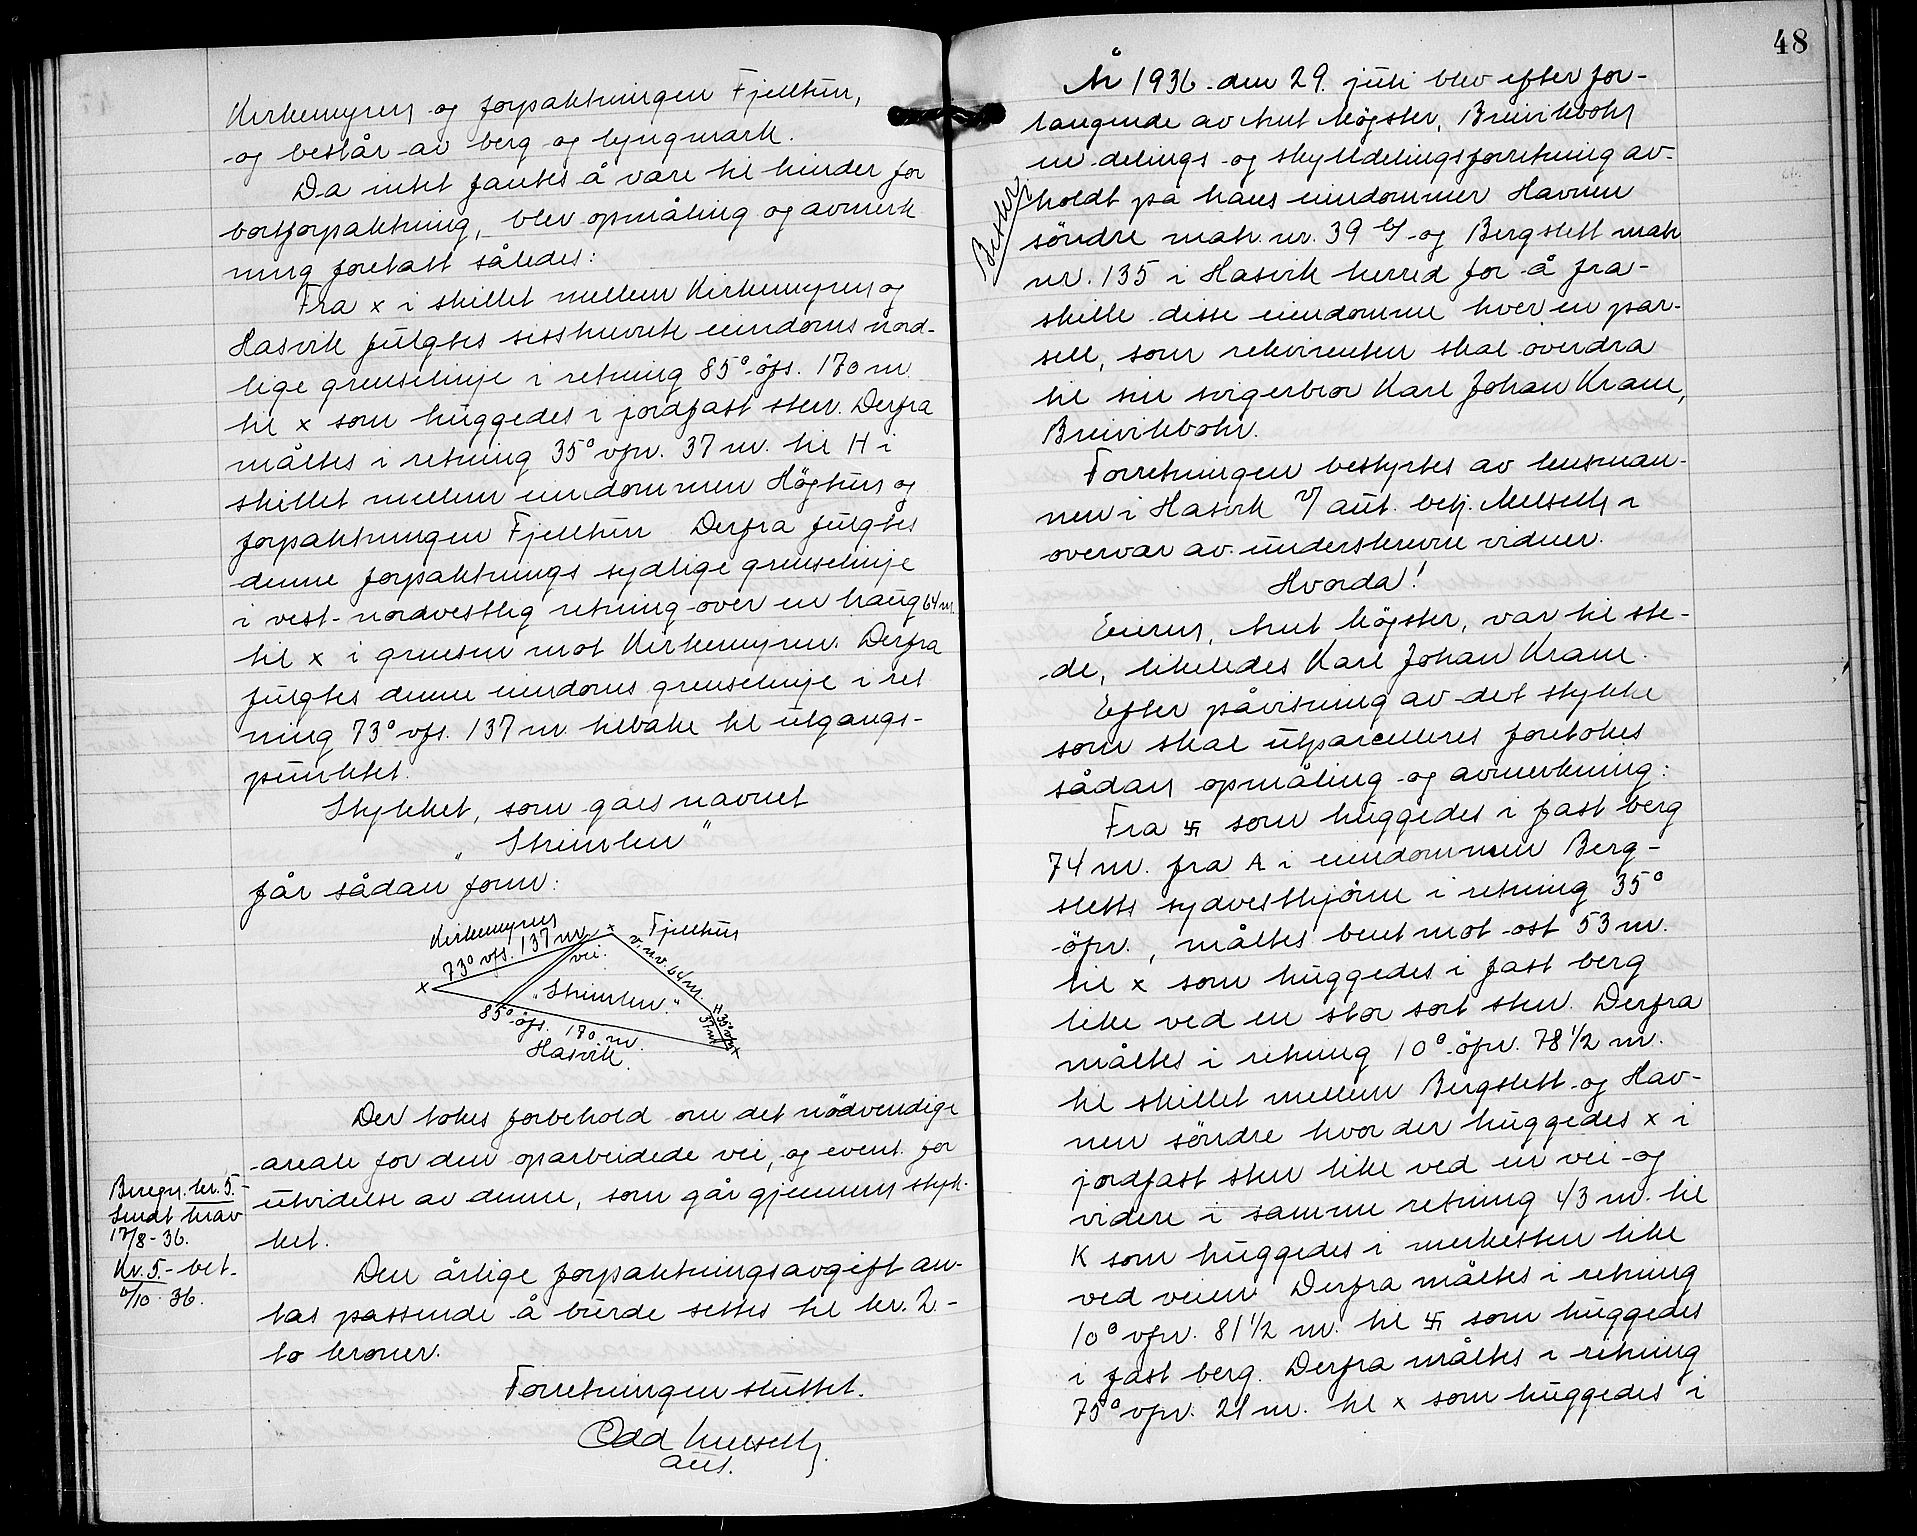 Kirkemyren og forpaktningen Fjelltun,
og består av berg og lyngmark.
Da intet fantes å være til hinder for
bortforpaktning, blev opmåling og avmerk
ning foretatt således:
Fra x i skillet mellem Kirkemyren og
Hasvik fulgtes sistnevnte eiendoms nord-
lige grenselinje i retning 85° öfs. 170 m
til x som huggedes i jordfast sten. Derfra
måltes i retning 35° vfn. 37 m. til H i
skillet mellem eiendommen Högtun og
forpaktningen Fjelltun Derfra fulgtes
denne forpaktnings sydlige grenselinje
i vest-nordvestlig retning over en haug 64 m.
til x i grensen mot Kirkemyren. Derfra
fulgtes denne eiendoms grenselinje i ret
ning 73° vfs. 137 m tilbake til utgangs-
punktet.
Stykket, som gaes navnet
"
får sådan form:
Kirkemyren
73° vfs. 137 m
x
Fjelltun
vei.
v.nv. 64 m.
x
85° öfs. 170 m.
H 35° vfn
37 m
x
Hasvik.
Der tokes forbehold om det nödvendige
areale for den oparbeidede vei, og event. for
utvidelse av denne, som går gjennem styk-
ket.
Beregn. kr. 5.-
Sendt krav
17/8-36.
Kr. 5.- bet.
6/10-36.
Den årlige forpaktningsavgift an-
tas passende å burde settes til kr. 2-
to kroner.
Forretningen sluttet.
Odd
aut.
48
År 1936 den 29. juli blev efter for-
langende av Knut Mögster, Breivikbotn
en delings- og skylddelingsforretning av-
holdt på hans eiendommer Havnen
söndre matr. nr. 39 og Bergslett matr
nr. 135 i Hasvik herred for å fra-
skille disse eiendomme hver en par-
sell, som rekvirenten skal overdra
til sin svigerbror Karl Johan Krane,
Breivikbotn.
Forretningen bestyrtes av lensman-
nen i Hasvik v/ aut. betj. i
overvær av underskrevne vidner.
Hvorda!
Eieren, Knut Mögster, var til ste-
de, likeledes Karl Johan Krane.
Efter påvisning av det stykke
som skal utparcelleres foretokes
sådan opmåling og avmerkning:
Fra 卐 som huggedes i fast berg
74 m. fra A i eiendommen Berg-
sletts sydvesthjörne i retning 35°
öfn., måltes bent mot ost 53 m.
til x som huggedes i fast berg
like ved en stor sort sten. Derfra
måltes i retning 10° öfn. 78 1/2 m.
til skillet mellem Bergslett og Hav-
nen söndre hvor der huggedes x i
jordfast sten like ved en vei og
videre i samme retning 43 m. til
K som huggedes i merkesten like
ved veien Derfra måltes i retning
10° vfn. 81 1/2 m. til 卐 som huggedes
i fast berg. Derfra måltes i retning
75° vfn. 21 m. til x som huggedes i